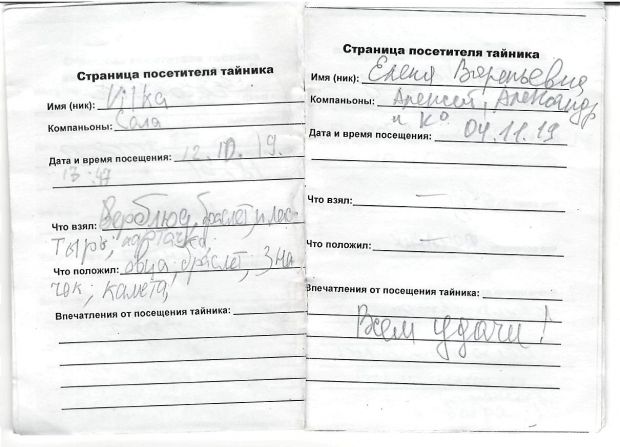 Страница посетителя тайника
Имя (ник): Vilka
Компаньоны: Сала
Дата и время посещения: 12.10.19.
13:47
Что взял: Верблюд, браслет, плас-
тырь,
Что положил: овца, браслет, знa-
чок,
Впечатления от посещения тайника:
Страница посетителя тайника
Имя (ник): Елена
Компаньоны: Алексей, Александр
и Ко
Дата и время посещения: 04.11.19
Что взял: —
Что положил: —
Впечатления от посещения тайника:
Всем удачи!